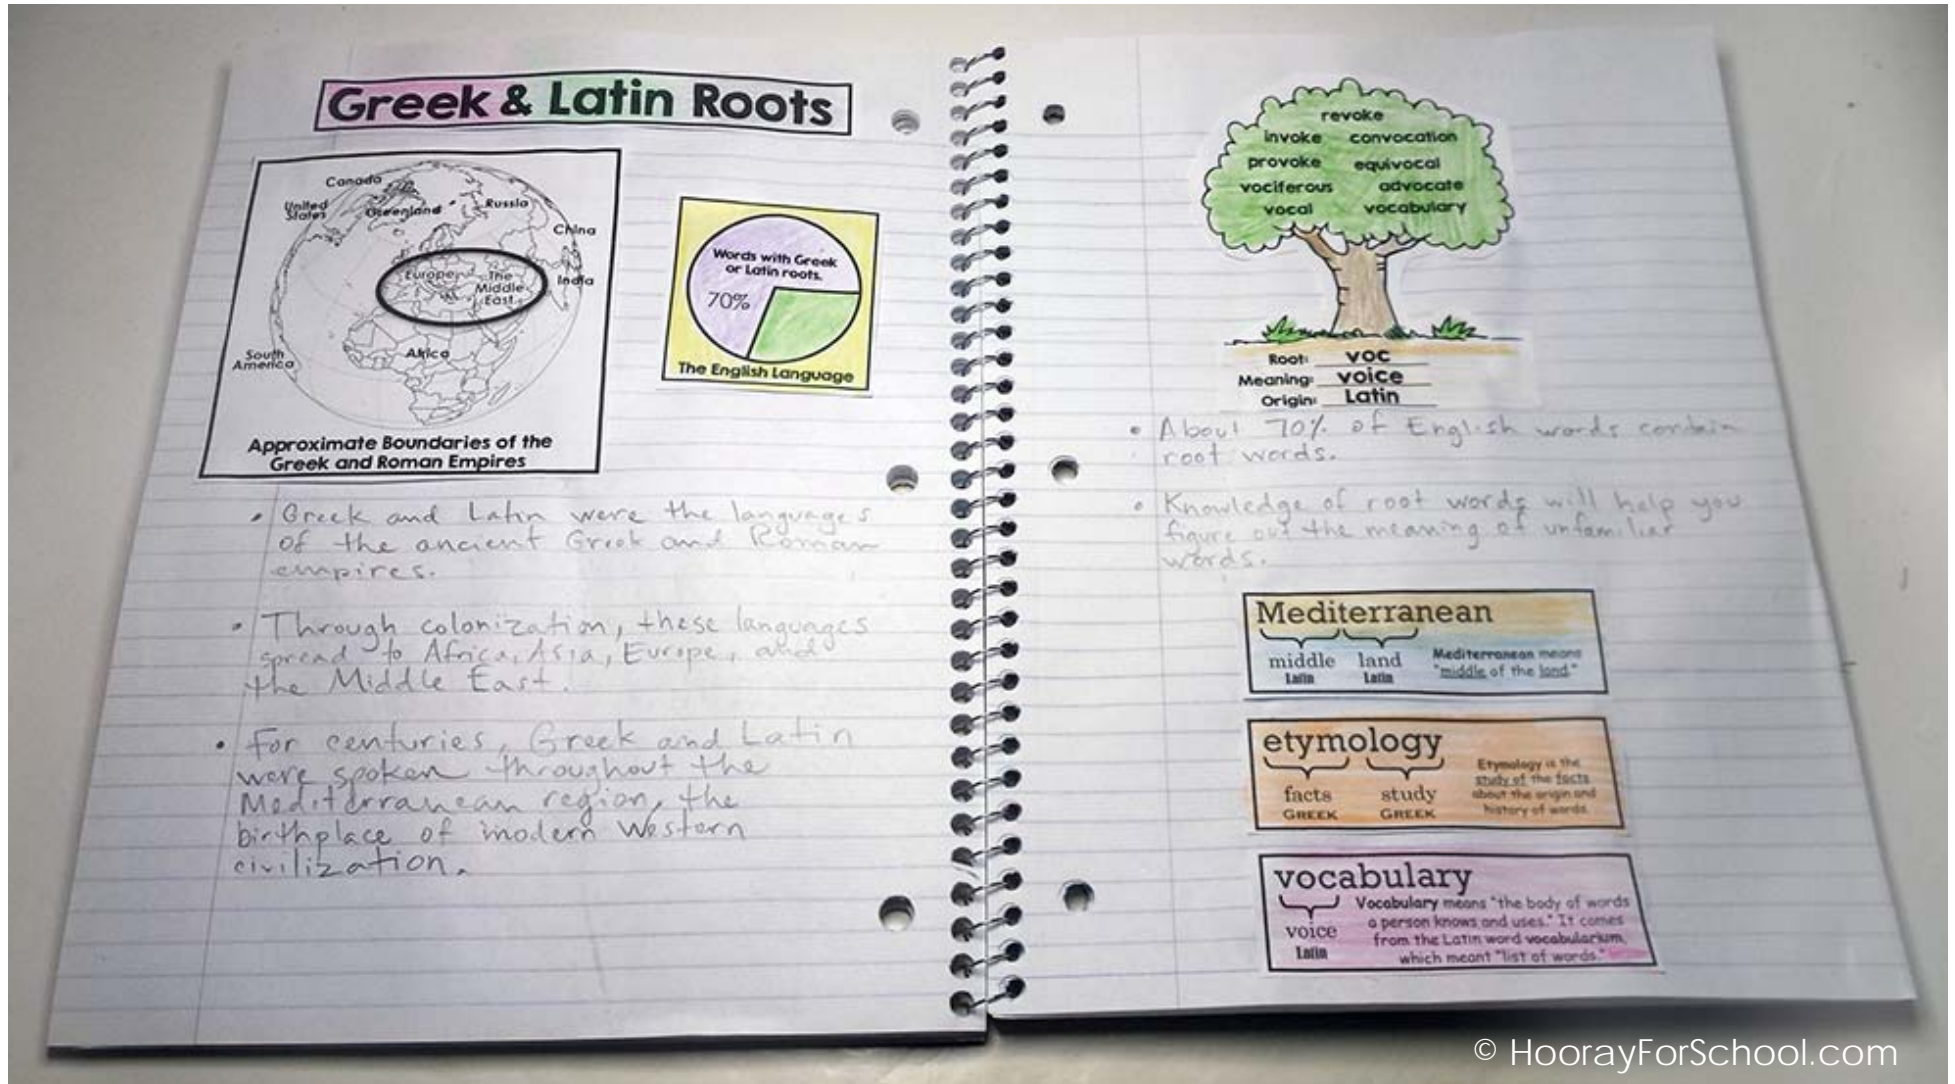 Greek & Latin Roots
Canada
United
States
Greenland
Russia
China
Europe
The
Middle
East
India
Africa
South
America
Approximate Boundaries of the
Greek and Roman Empires
Words with Greek
or Latin roots.
70%
The English Language
• Greek and Latin were the languages
of the ancient Greek and Roman
empires.
• Through colonization, these languages
spread to Africa, Asia, Europe, and
the Middle East.
• For centuries, Greek and Latin
were spoken throughout the
Mediterranean region, the
birthplace of modern Western
civilization.
revoke
invoke convocation
provoke equivocal
vociferous advocate
vocal vocabulary
Root: voc
Meaning: voice
Origin: Latin
• About 70% of English words contain
root words.
• Knowledge of root words will help you
figure out the meaning of unfamiliar
words.
Mediterranean
middle land
Latin Latin
Mediterranean means
"middle of the land."
etymology
facts study
GREEK GREEK
Etymology is the
study of the facts
about the origin and
history of words.
vocabulary
voice
Latin
Vocabulary means "the body of words
a person knows and uses." It comes
from the Latin word vocabularium,
which meant "list of words."
© HoorayForSchool.com